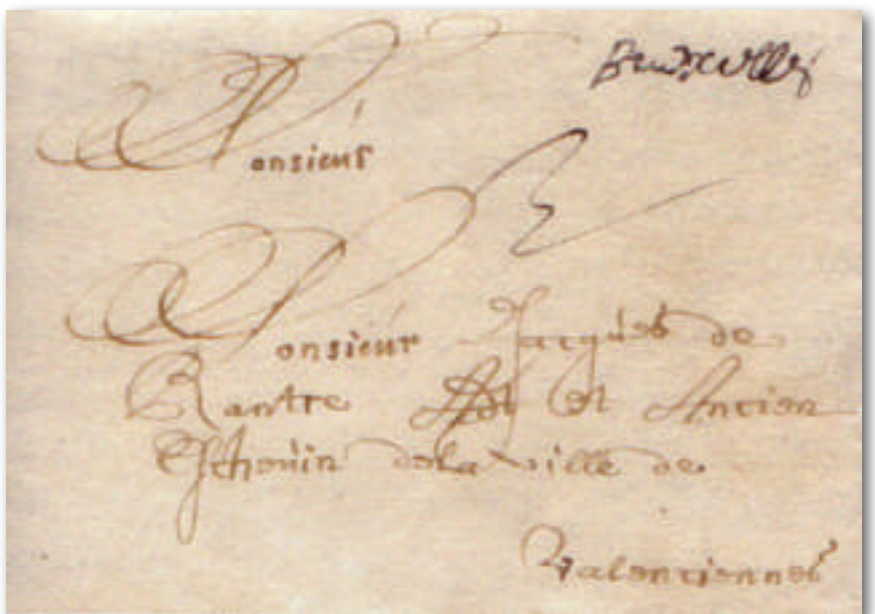 Bruxelles
Monsieur
Monsieur Jacques de
Rantre et Ancien
Eschevin dela ville de
Valenciennes